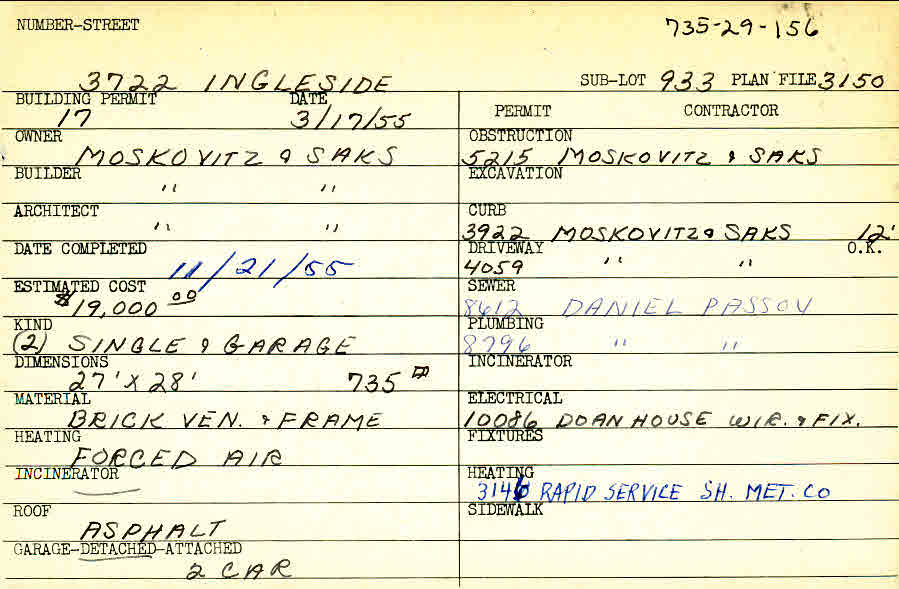 NUMBER-STREET
735-29-156
3722 INGLESIDE
SUB-LOT 933 PLAN FILE 3150
BUILDING PERMIT DATE
17 3/17/55
OWNER
MOSKOVITZ & SAKS
BUILDER
" "
ARCHITECT
" "
DATE COMPLETED
11/21/55
ESTIMATED COST
$19,000 00
KIND
(2) SINGLE & GARAGE
DIMENSIONS
27' X 28' 735
MATERIAL
BRICK VEN. & FRAME
HEATING
FORCED AIR
INCINERATOR
ROOF
ASPHALT
GARAGE-DETACHED-ATTACHED
2 CAR
PERMIT CONTRACTOR
OBSTRUCTION
5215 MOSKOVITZ & SAKS
EXCAVATION
CURB
3922 MOSKOVITZ & SAKS 12'
DRIVEWAY O.K.
4059 " "
SEWER
8612 DANIEL PASSOV
PLUMBING
8796 " "
INCINERATOR
ELECTRICAL
10086 DOAN HOUSE WIR. & FIX.
FIXTURES
HEATING
3146 RAPID SERVICE SH. MET. CO
SIDEWALK